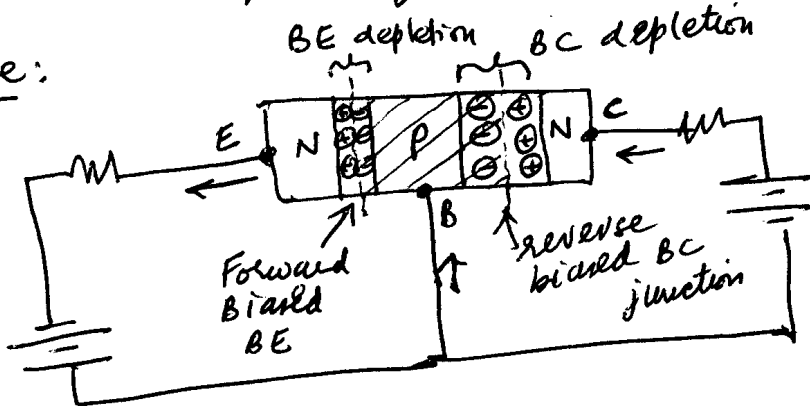 BE depletion
BC depletion
e:
E
N
P
N
C
B
Forward
Biased
BE
reverse
biased BC
junction